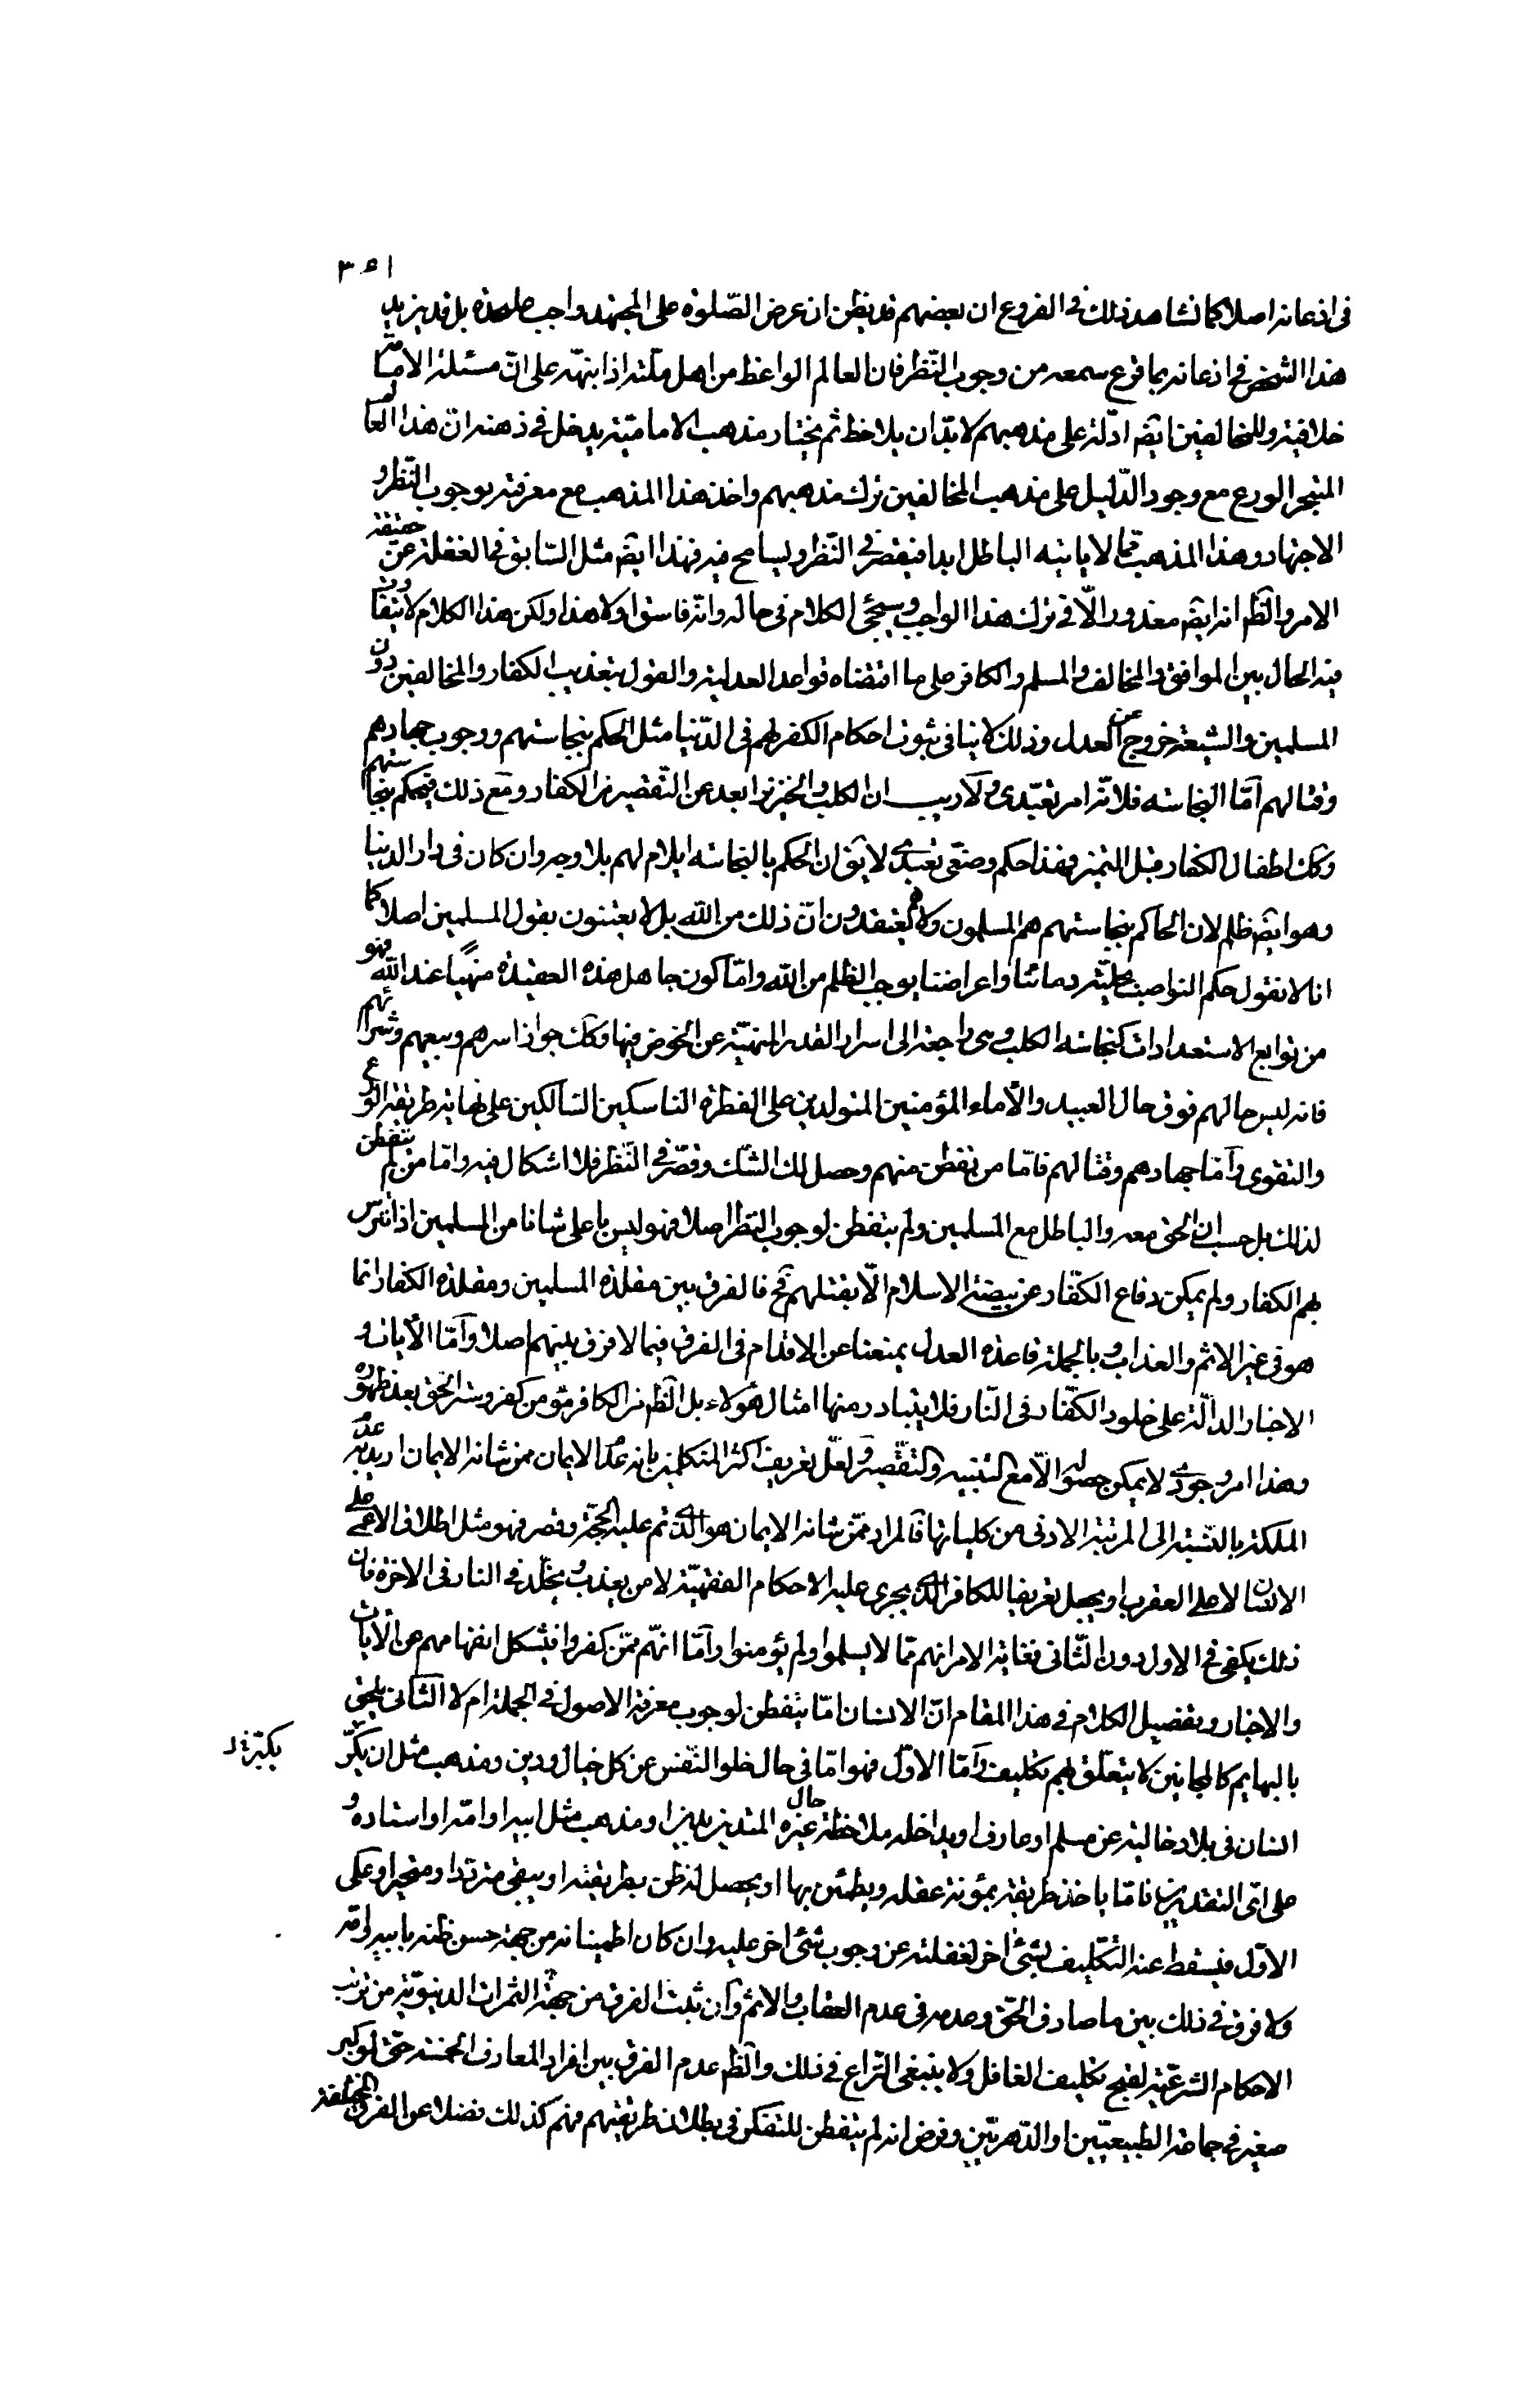 ٣٥١
فى اذعانه اصلا كما نشاهد ذلك فى الفروع ان بعضهم قد يظن ان عرض الصّلوة على المجتهد واجب على حدة بل قد يزيد
هذا الشخص فى اذعانه بما قرع سمعه من وجوب النّظر فان العالم الواعظ من اهل ملّته اذا ينبّه على انّ مسئلة الامامة
خلافية وللمخالفين ايضا ادلّة على مذهبهم لا بدّ ان يلاحظ ثم يختار مذهب الاماميّة يدخل فى ذهنه انّ هذا العالم
المتبحر الورع مع وجود الدّليل على مذهب المخالفين ترك مذهبهم واخذ هذا المذهب مع معرفته بوجوب النّظر و
الاجتهاد وهذا المذهب ممّا لا ياتيه الباطل ابدا فيقصر فى النّظر ويسامح فيه فهذا ايضا مثل السّابق فى الغفلة عن حقيقة
الامر والظ انه ايضا معذور الّا فى ترك هذا الواجب وسيجئ الكلام فى حاله وانه فاسق او لا هذا ولكن هذا الكلام لا يتفاوت
فيه الحال بين الموافق والمخالف والمسلم والكافر على ما اقتضاه قواعد العدلية والقول بتعذيب الكفار والمخالفين دون
المسلمين والشيعة خروج عن العدل وذلك لا ينافى ثبوت احكام الكفر لهم فى الدّنيا مثل الحكم بنجاستهم ووجوب جهادهم
وقتالهم امّا النجاسة فلانّه امر تعبّدى ولا ريب ان الكلب والخنزير ابعد عن التّقصير من الكفار ومع ذلك فيحكم بنجاستهم
وكك اطفال الكفار قبل التميز فهذا حكم وضعى تعبدى لا يق ان الحكم بالنجاسة ايلام لهم بلا وجه وان كان فى دار الدنيا
وهو ايضا ظلم لان الحاكم بنجاستهم هم المسلمون وهم لا يعتقدون انّ ذلك من الله بل لا يعتنون بقول المسلمين اصلا كما
انا لا نقول حكم النواصب بحلّية دمائنا واعراضنا يوجب الظلم من الله وامّا كون جاهل هذه العقيدة منهيّا عند الله فهو
من توابع الاستعدادات كنجاسة الكلب وهى راجعة الى اسرار القدر المنهيّة عن الخوض فيها وكك جواز اسرهم وبيعهم وشرائهم
فانه ليس حالهم فوق حال العبيد والأماء المؤمنين المتولدين على الفطرة الناسكين السّالكين على نهاية طريقة الورع
والتقوى وامّا جهادهم وقتالهم فامّا من تفطن منهم وحصل له الشّك وقصّر فى النّظر فلا اشكال فيه وامّا من لم يتفطن
لذلك بل حسب ان الحق معه والباطل مع المسلمين ولم يتفطن لوجوب النظر اصلا فهو ليس باعلى شانا من المسلمين اذا تترّس
بهم الكفار ولم يمكن دفاع الكفّار عن بيضة الاسلام الّا بقتلهم فح فالفرق بين مقلدة المسلمين ومقلدة الكفار انما
هو فى غير الاثم والعذاب وبالجملة قاعدة العدل يمنعنا عن الاقدام فى الفرق فيما لا فرق بينهما اصلا وامّا الأيات و
الاخبار الدالّة على خلود الكفّار فى النّار فلا يتبادر منها امثال هؤلاء بل الظ ان الكافر هو من كفر وستر الحق بعد ظهوره
وهذا امر وجودى لا يمكن حصوله الّا مع التنبيه والتقصير ولعلّ تعريف اكثر المتكلمين بانه عدم الايمان ممن شانه الايمان اريد به عدم
الملكة بالنّسبة الى المرتبة الادنى من كلياتها فالمراد ممّن شانه الايمان هو الذى تم عليه الحجّة وقصر فهو مثل اطلاق الاعمى على
الانسان لا على العقرب او يجعل تعريفا للكافر الذى يجرى عليه الاحكام الفقهيّة لا من يعذب ويخلّد فى النار فى الاخرة فان
ذلك يكفى فى الاول دون الثّانى فغاية الامر انهم ممّا لا يسلموا ولم يؤمنوا وامّا انهم ممّن كفروا فيشكل انفهامهم عن الأيات
والاخبار وتفصيل الكلام فى هذا المقام انّ الانسان امّا يتفطن لوجوب معرفة الاصول فى الجملة ام لا الثّانى يلحق
بالبهايم كالمجانين لا يتعلّق بهم تكليف وامّا الاوّل فهو امّا فى حال خلو النّفس عن كل خيال ودين ومذهب مثل ان يكبر
انسان فى بلاد خالية عن مسلم او عارف او يداخله ملاحظة حال غيره المتدين بدين او مذهب مثل ابيه او امّه او استاده و
على اىّ التقديرين فامّا ياخذ طريقة بمؤنة عقله ويطمئن بها او يحصل له ظن بطريقته او يبقى مترددا ومتحيرا وعلى
الاوّل فيسقط عنه التّكليف بشئ اخر لغفلته عن وجوب شئ اخر عليه وان كان اطمينانه من جهة حسن ظنه بابيه او امّه
ولا فرق فى ذلك بين ما صادف الحّق وعدمه فى عدم العقاب والاثم وان ثبت الفرق من جهة الثمرات الدنيويّة من ترتب
الاحكام الشرعّية لقبح تكليف الغافل ولا ينبغى النّزاع فى ذلك والظ عدم الفرق بين افراد المعارف الخمسة حتّى لو كبر
صغير فى جماعة الطبيعيّين او الدّهريّين وفرض انه لم يتفطن للتفكر فى بطلان طريقتهم فهم كذلك فضلا عن الفرق المختلفة